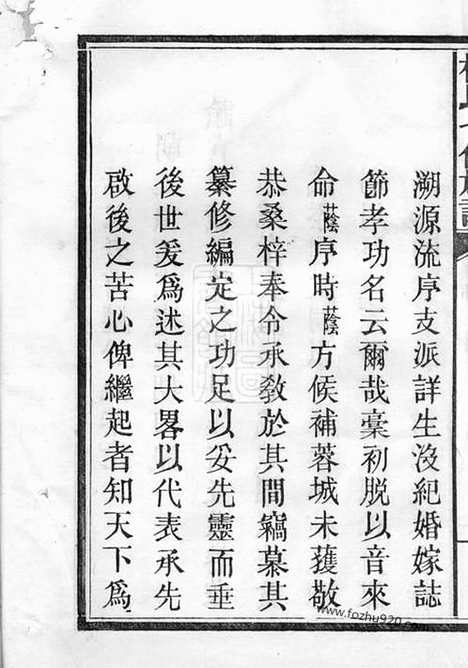 溯源流序支派詳生沒紀婚嫁誌
節孝功名云爾哉稾初脫以音來
命蔭序時蔭方候補蓉城未獲敬
恭桑梓奉令承敎於其間竊慕其
纂修編定之功足以妥先靈而垂
後世爰爲述其大畧以代表承先
啟後之苦心俾繼起者知天下爲
www.fozhu920.com